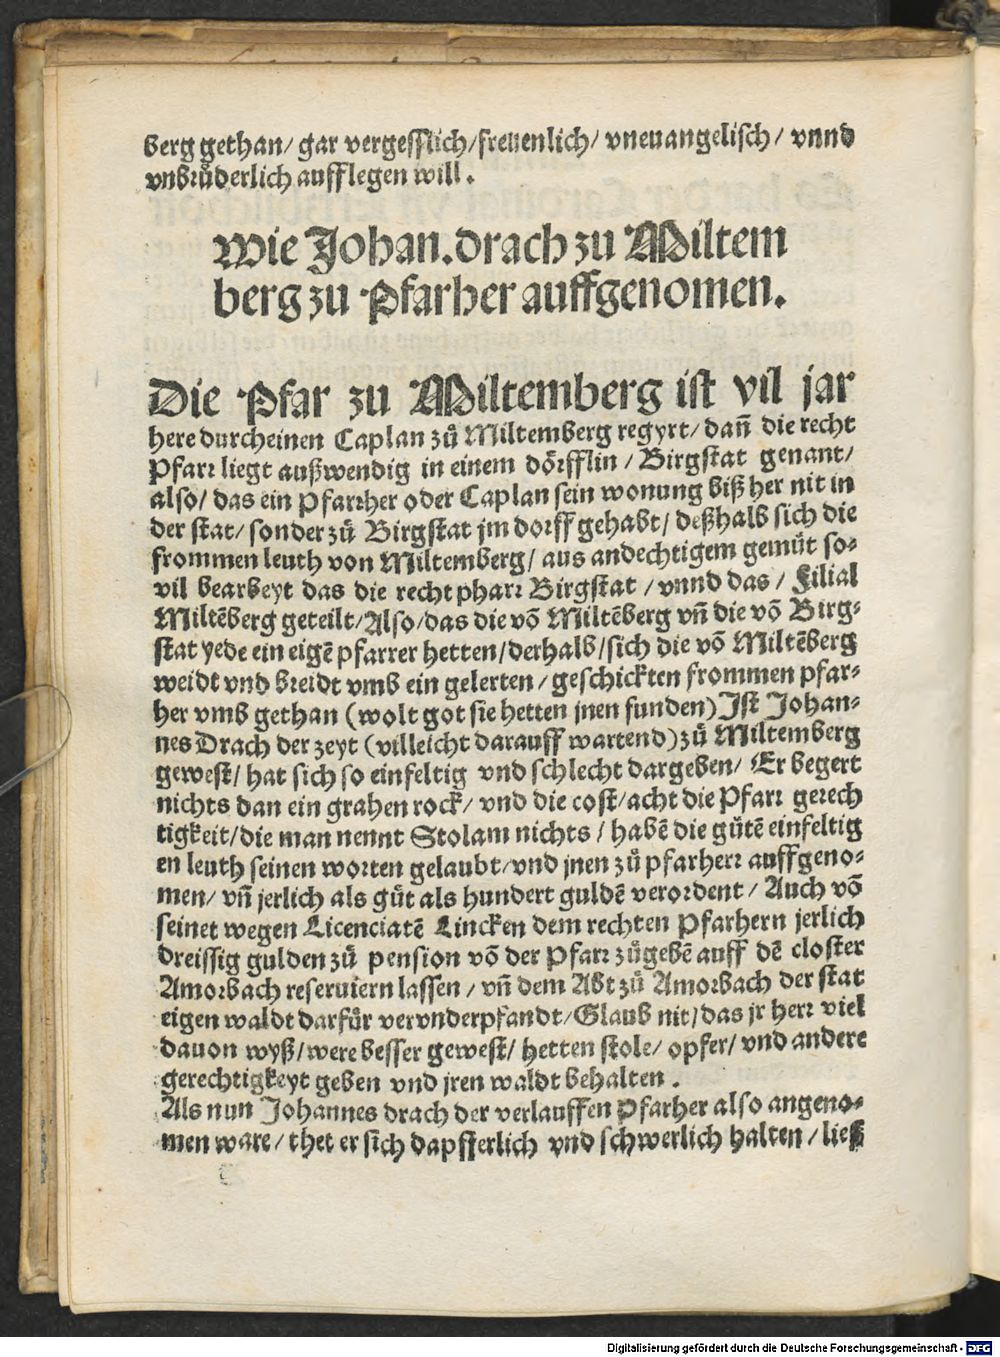 berg gethan/ gar vergesslich/ freuenlich/ vneuangelisch/ vnnd
vnbrůderlich aufflegen will.
Wie Johan. drach zu Miltem
berg zu Pfarher auffgenomen.
Die Pfar zu Miltemberg ist vil jar
here durcheinen Caplan zů Miltemberg regyrt/ dañ die recht
Pfarr liegt außwendig in einem dörfflin / Birgstat genant/
also/ das ein Pfarrher oder Caplan sein wonung biß her nit in
der stat/ sonder zů Birgstat jm dorff gehabt/ deßhalb sich die
frommen leuth von Miltemberg/ aus andechtigem gemůt so-
vil bearbeyt das die recht pharr Birgstat / vnnd das / Filial
Miltēberg geteilt/ Also/ das die vō Miltēberg vñ die vō Birg-
stat yede ein eigē pfarrer hetten/ derhalb/ sich die vō Miltēberg
weidt vnd breidt vmb ein gelerten/ geschickten frommen pfar-
her vmb gethan (wolt got sie hetten jnen funden) Ist Johan-
nes Drach der zeyt (villeicht darauff wartend) zů Miltemberg
gewest/ hat sich so einfeltig vnd schlecht dargeben/ Er begert
nichts dan ein grahen rock/ vnd die cost/ acht die Pfarr gerech
tigkeit/ die man nennt Stolam nichts / habē die gůtē einfeltig
en leuth seinen worten gelaubt/ vnd jnen zů pfarherr auffgeno-
men/ vñ jerlich als gůt als hundert guldē verordent/ Auch vō
seinet wegen Licenciatē Lincken dem rechten Pfarhern jerlich
dreissig gulden zů pension vō der Pfarr zůgebē auff dē closter
Amorbach reseruiern lassen / vñ dem Abt zů Amorbach der stat
eigen waldt darfůr vervnderpfandt/ Glaub nit/ das jr herr viel
dauon wyß/ were besser gewest/ hetten stole/ opfer/ vnd andere
gerechtigkeyt geben vnd jren waldt behalten.
Als nun Johannes drach der verlauffen Pfarher also angeno-
men ware/ thet er sich dapfferlich vnd schwerlich halten / ließ
Digitalisierung gefördert durch die Deutsche Forschungsgemeinschaft - DFG